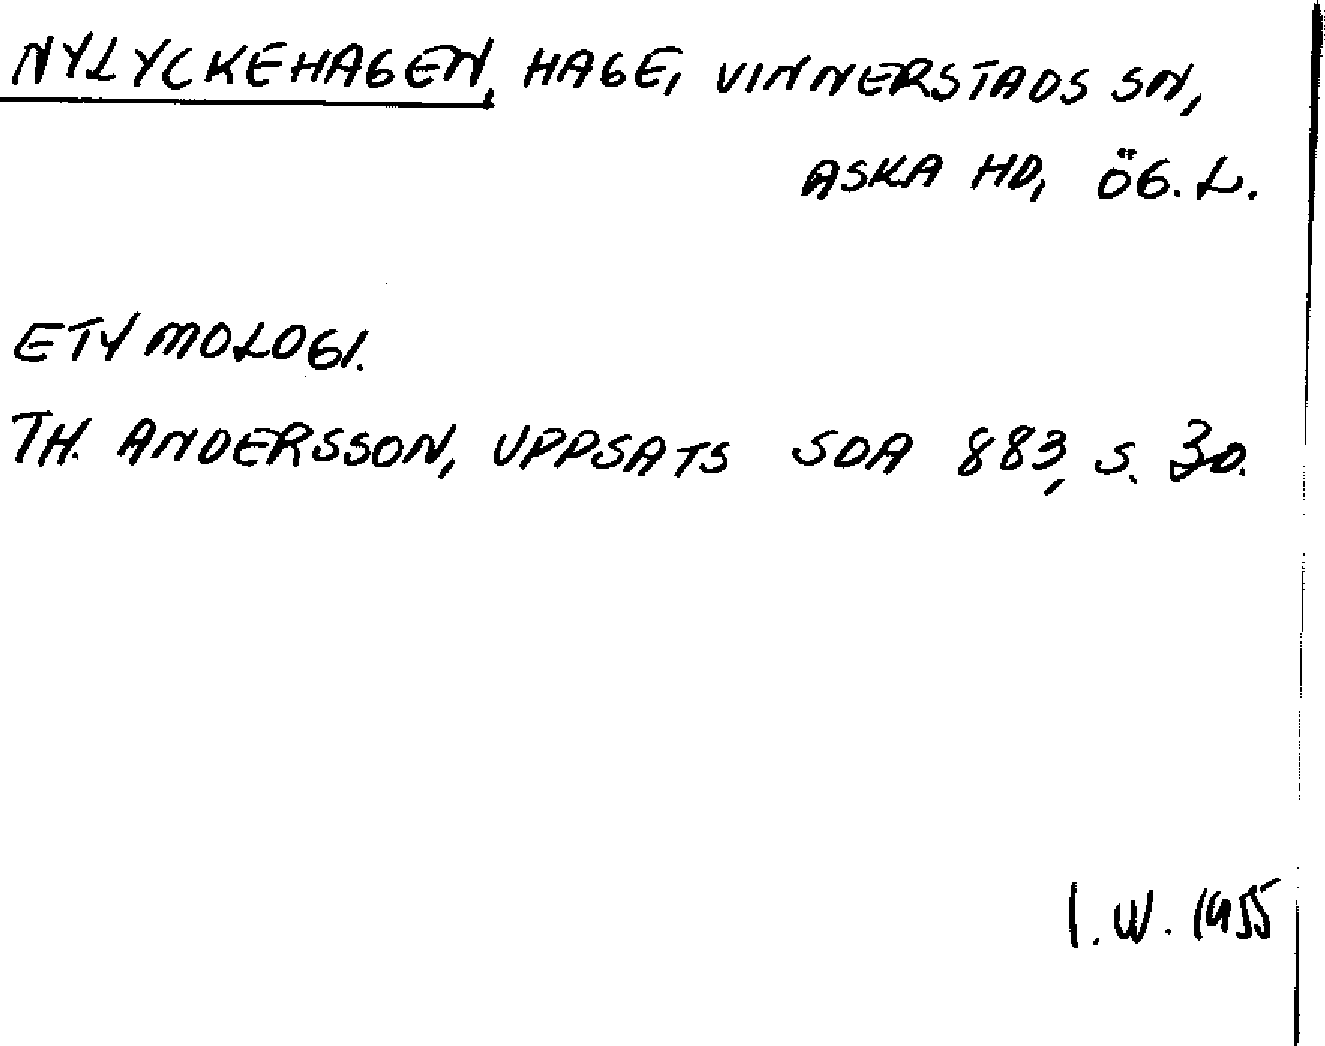 NYLYCKEHAGEN, HAGE, VINNERSTADS SN,
ASKA HD, ÖG. L.
ETYMOLOGI.
TH. ANDERSSON, UPPSATS SOA 883, S. 30.
I. W. 1955